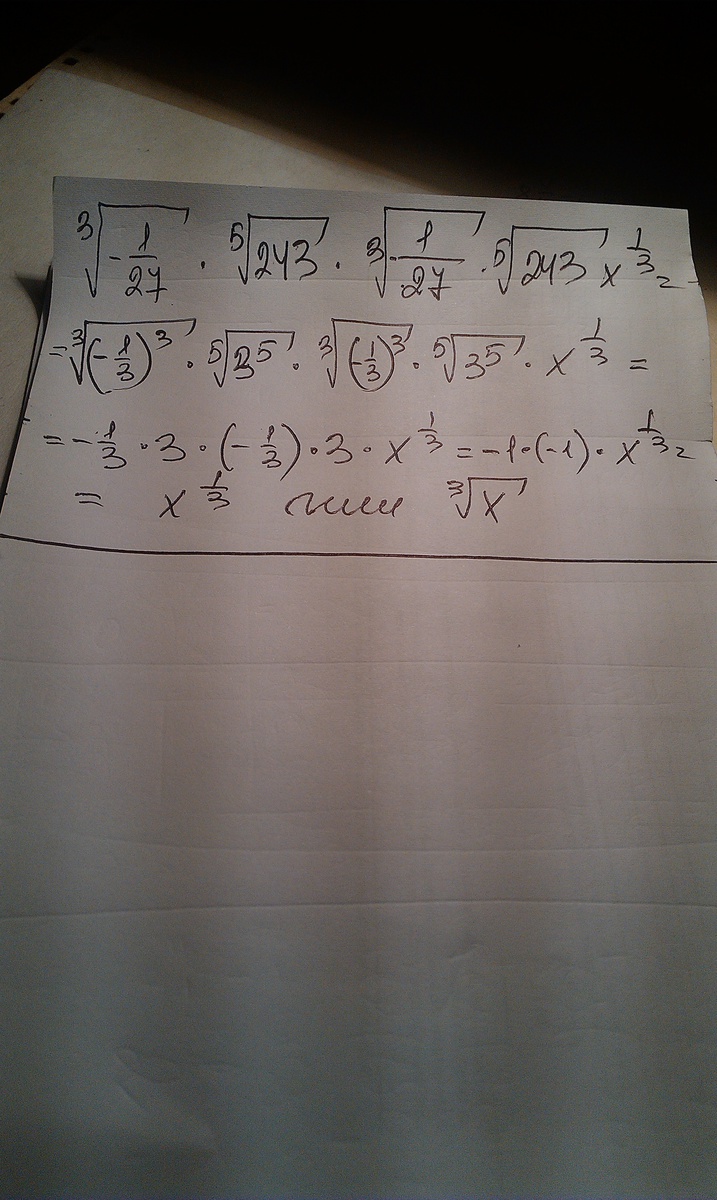 ∛(-1/27) · ⁵√243 · ∛(-1/27) · ⁵√243 x^(1/3) =
= ∛((-1/3)³) · ⁵√(3⁵) · ∛((-1/3)³) · ⁵√(3⁵) · x^(1/3) =
= -1/3 · 3 · (-1/3) · 3 · x^(1/3) = -1 · (-1) · x^(1/3) =
= x^(1/3) или ∛x